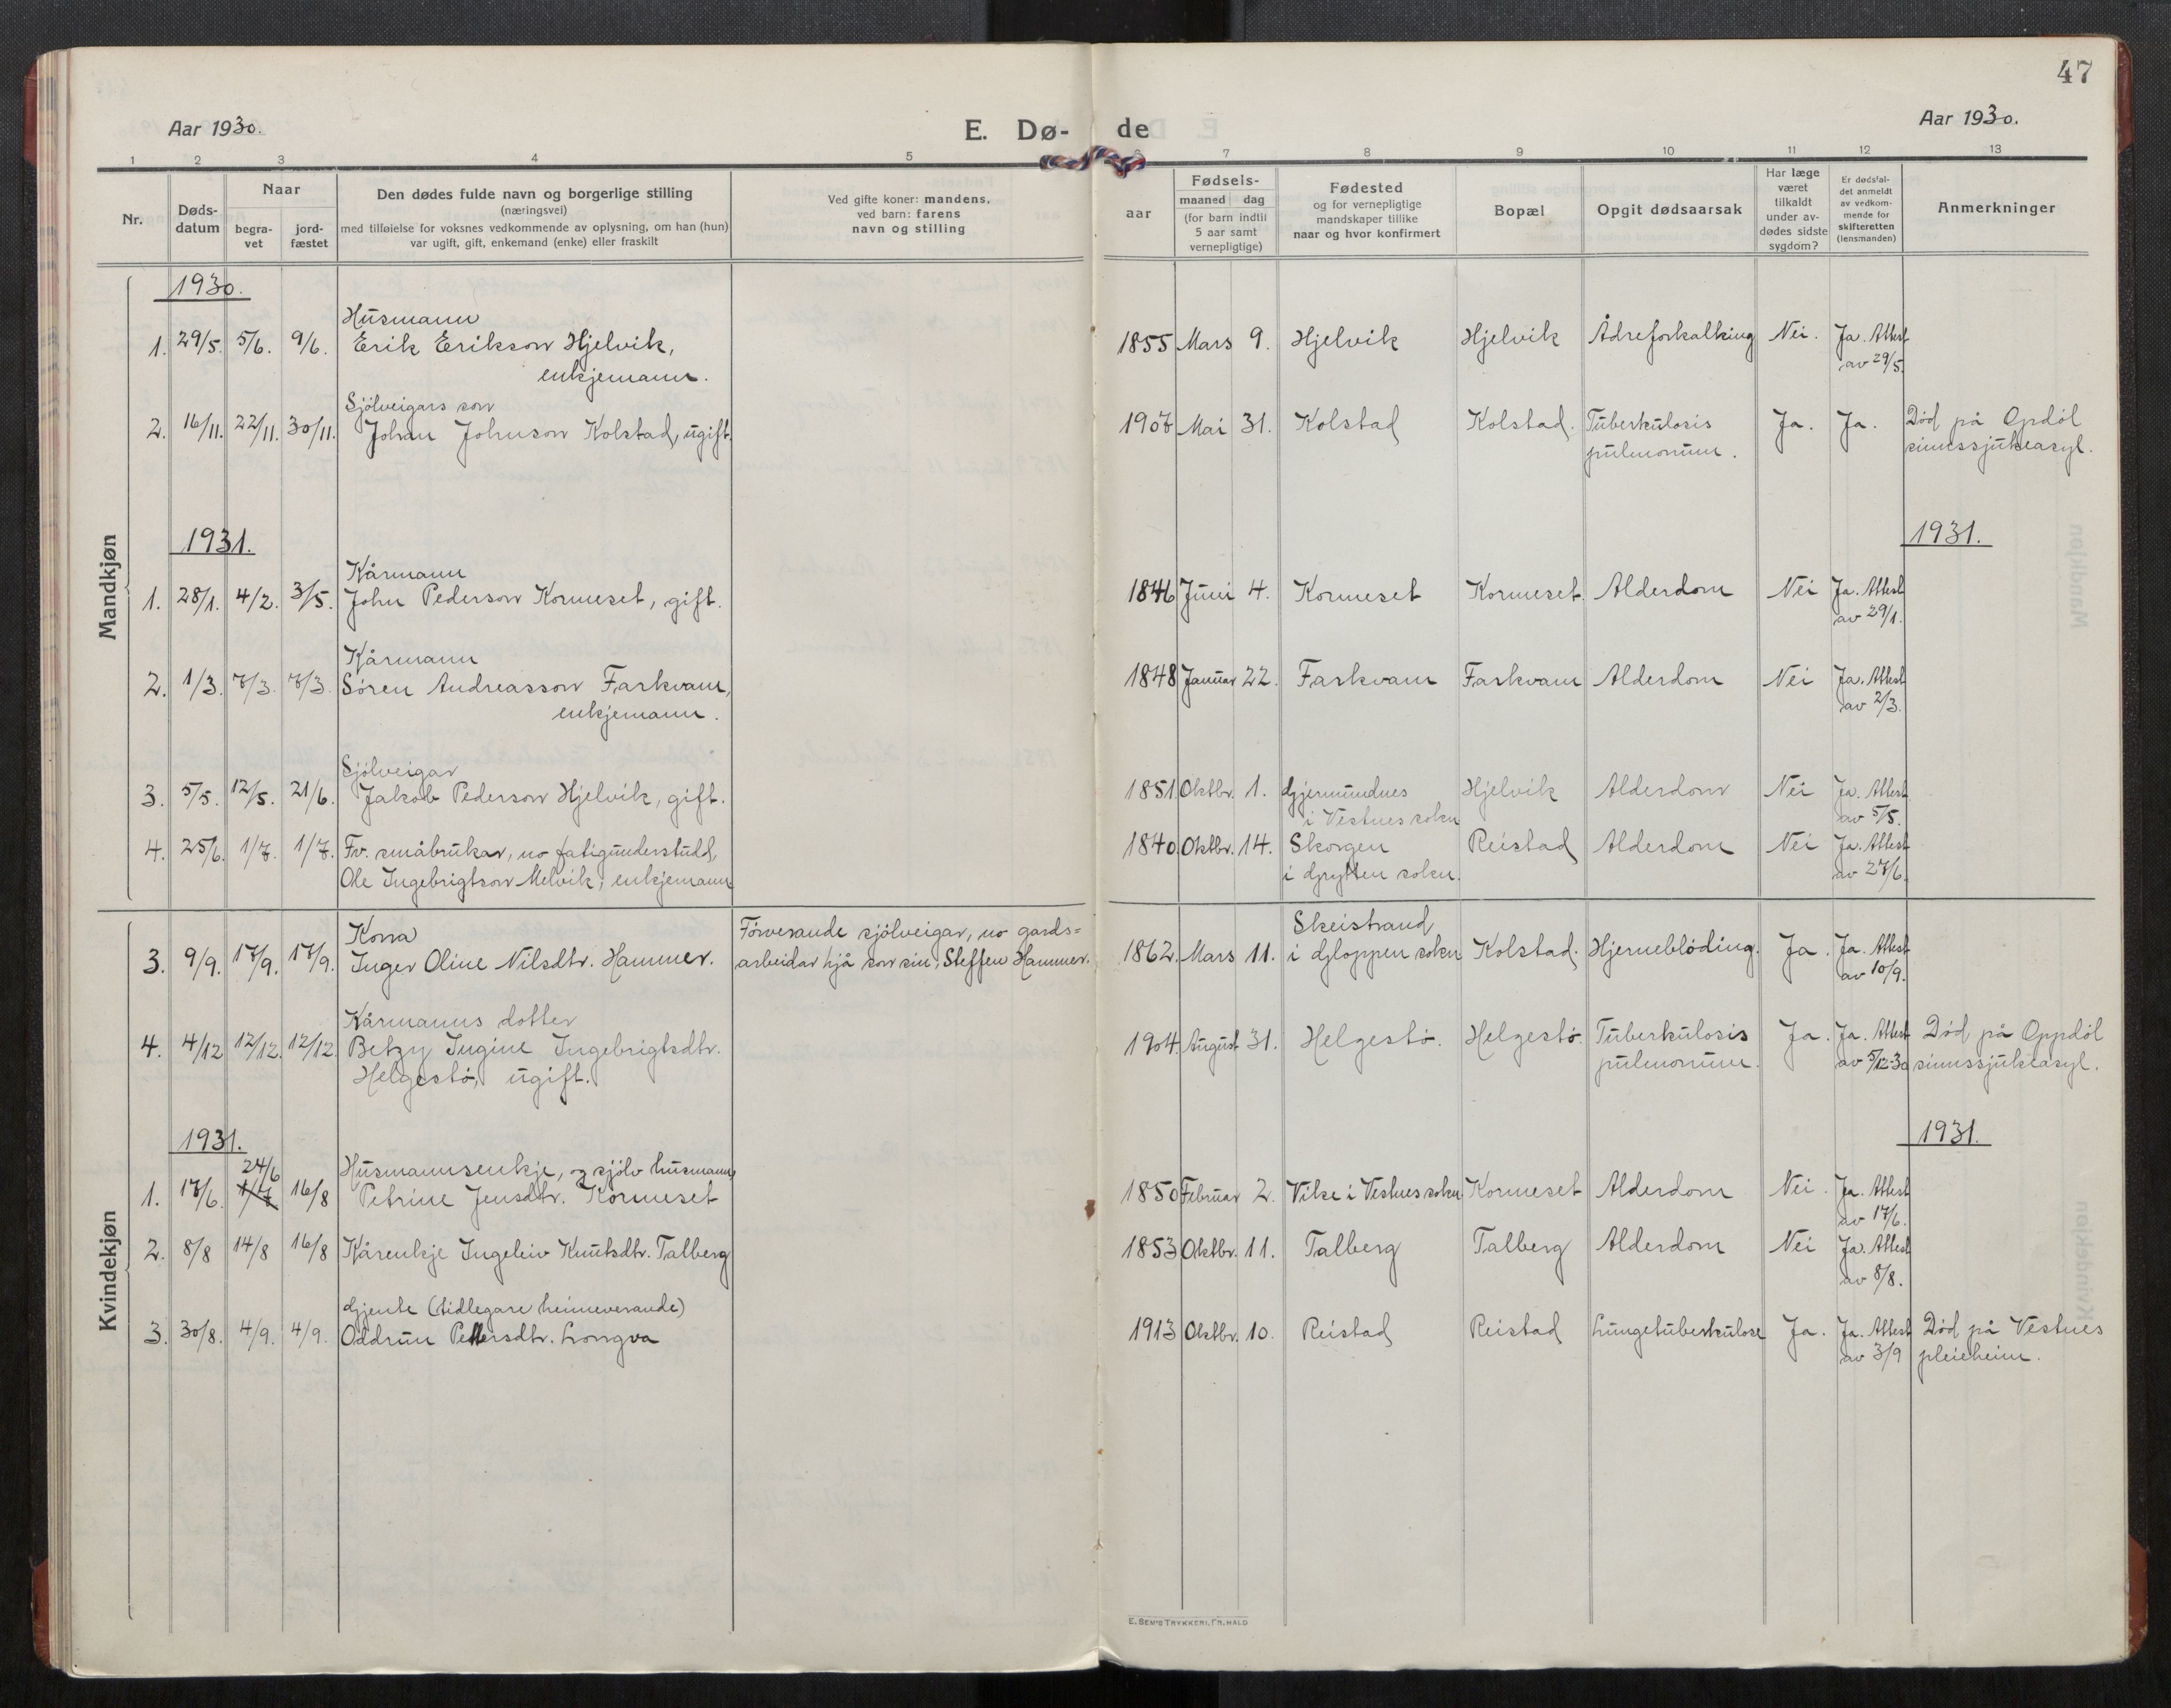 47
Aar 1930.
E. Dø- de
Aar 1930.
1 2 3 4 5 6 7 8 9 10 11 12 13
Nr.
Døds-
datum
Naar
begra-
vet
jord-
fæstet
Den dødes fulde navn og borgerlige stilling
(næringsvei)
med tilføielse for voksnes vedkommende av oplysning, om han (hun)
var ugift, gift, enkemand (enke) eller fraskilt
Ved gifte koner: mandens,
ved barn: farens
navn og stilling
Fødsels-
aar
maaned dag
(for barn indtil
5 aar samt
vernepligtige)
Fødested
og for vernepligtige
mandskaper tillike
naar og hvor konfirmert
Bopæl
Opgit dødsaarsak
Har læge
været
tilkaldt
under av-
dødes sidste
sygdom?
Er dødsfal-
det anmeldt
av vedkom-
mende for
skifteretten
(lensmanden)
Anmerkninger
Mandkjøn
1930.
Husmann
1. 29/5. 5/6. 9/6. Erik Erikson Hjelvik, 1855 Mars 9. Hjelvik Hjelvik Ådreforkalking Nei. Ja. Attest
enkjemann. av 29/5.
Sjölveigars son
2. 16/11. 22/11. 30/11. Johan Johnson Kolstad, ugift. 1907 Mai 31. Kolstad Kolstad. Tuberkulosis Ja. Ja. Död på Opdöl
pulmonum. sinnssjukeasyl.
1931. 1931.
Kårmann
1. 28/1. 4/2. 3/5. John Pederson Kormeset, gift. 1846 Juni 4. Kormeset Kormeset. Alderdom Nei Ja. Attest
av 29/1.
Kårmann
2. 1/3. 7/3. 7/3. Sören Andreasson Farkvam, 1848 Januar 22. Farkvam Farkvam Alderdom Nei Ja. Attest
enkjemann. av 2/3.
Sjölveigar
3. 5/5. 12/5. 21/6. Jakob Pederson Hjelvik, gift. 1851 Oktbr. 1. Gjermundnes Hjelvik Alderdom Nei Ja. Attest
i Vestnes sokn av 5/5.
4. 25/6. 1/7. 1/7. Fv. småbrukar, no fatigunderstudd, 1840. Oktbr. 14. Skorgen Reistad Alderdom Nei Ja. Attest
Ole Ingebrigtson Melvik, enkjemann i Grytten sokn. av 27/6.
Kvindekjøn
Kona Forverande sjölveigar, no gards- Skeistrand
3. 9/9. 17/9. 17/9. Inger Oline Nilsdtr. Hammer. arbeidar hjå son sin, Steffen Hammer. 1862. Mars 11. i Gloppen sokn Kolstad. Hjerneblöding. Ja. Ja. Attest
av 10/9.
Kårmanns dotter
4. 4/12 12/12. 12/12. Betzy Ingine Ingebrigtsdtr. 1904. August 31. Helgestö. Helgestö. Tuberkulosis Ja. Ja. Attest Död på Oppdöl
Helgestö, ugift. pulmonum. av 5/12-30 sinnssjukeasyl.
1931. 1931.
24/6 Husmannsenkje, og sjölv husmann,
1. 17/6. 1/7 16/8 Petrine Jensdtr. Kormeset 1850 Februar 2. Vike i Vestnes sokn Kormeset Alderdom Nei. Ja. Attest
av 17/6.
2. 8/8 14/8 16/8 Kårenkje Ingeleiv Knutsdtr. Talberg 1853 Oktbr. 11. Talberg Talberg Alderdom Nei Ja. Attest
av 8/8.
Gjente (tidlegare heimeverande)
3. 30/8. 4/9. 4/9. Oddrun Pettersdtr. Longva 1913 Oktbr. 10. Reistad Reistad Lungetuberkulose Ja. Ja. Attest Död på Vestnes
av 3/9 pleieheim.
E. SEM'S TRYKKERI, FR.HALD